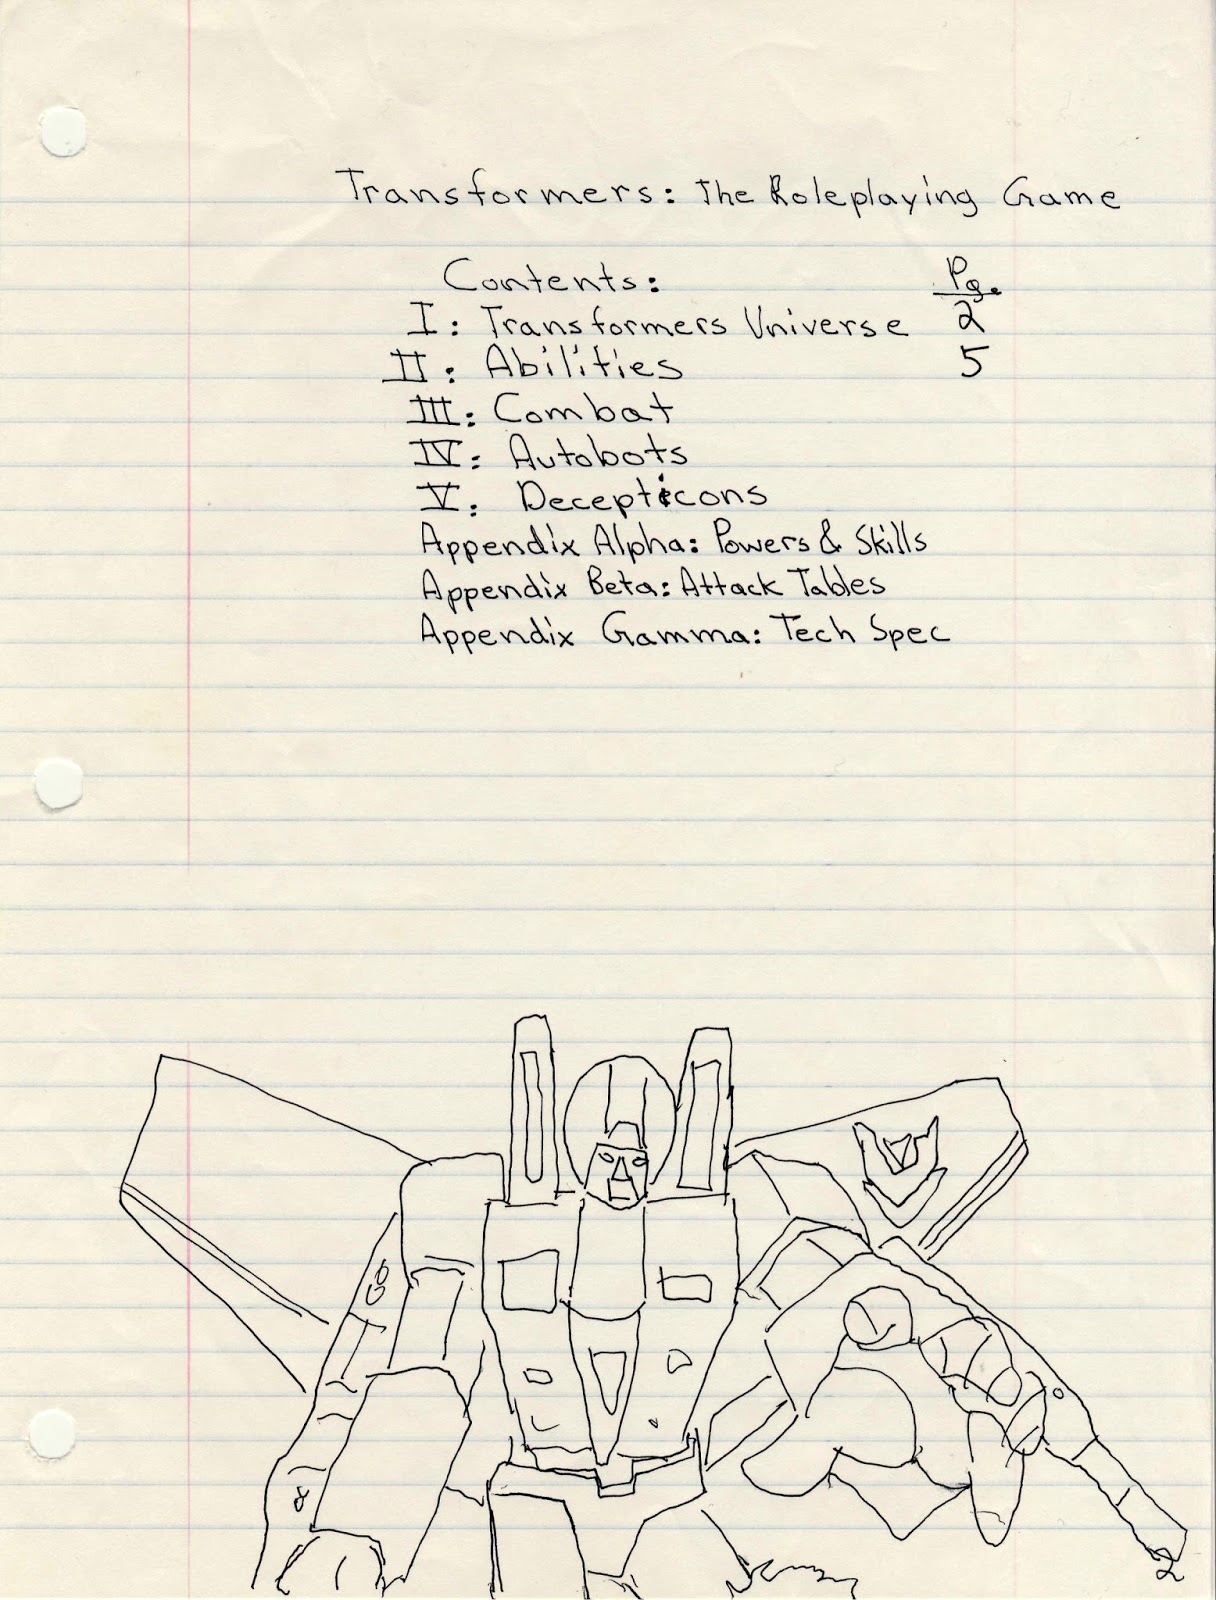 Transformers: The Roleplaying Game
Contents: Pg.
I: Transformers Universe 2
II: Abilities 5
III: Combat
IV: Autobots
V: Decepticons
Appendix Alpha: Powers & Skills
Appendix Beta: Attack Tables
Appendix Gamma: Tech Spec
2